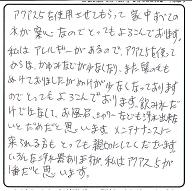 アクアス5を使用させてもらって家中おどの
水が安心なのでとってもよろこんでおります。
私はアレルギーがあるので、アクアス5を使って
からは、かゆみなどが少なくなり、また髪の毛も
ぬけておりましたがぬけが少なくなっております
のでとってもよろこんでおります。飲み水だ
けでなくて、お風呂、シャワーなども浄水出来
いと だめだと思います。メンテナンスに
来られる方も とっても親切にしてくださいます
いろんな浄水器ありますが、私はアクアス5が
1番だと思います。